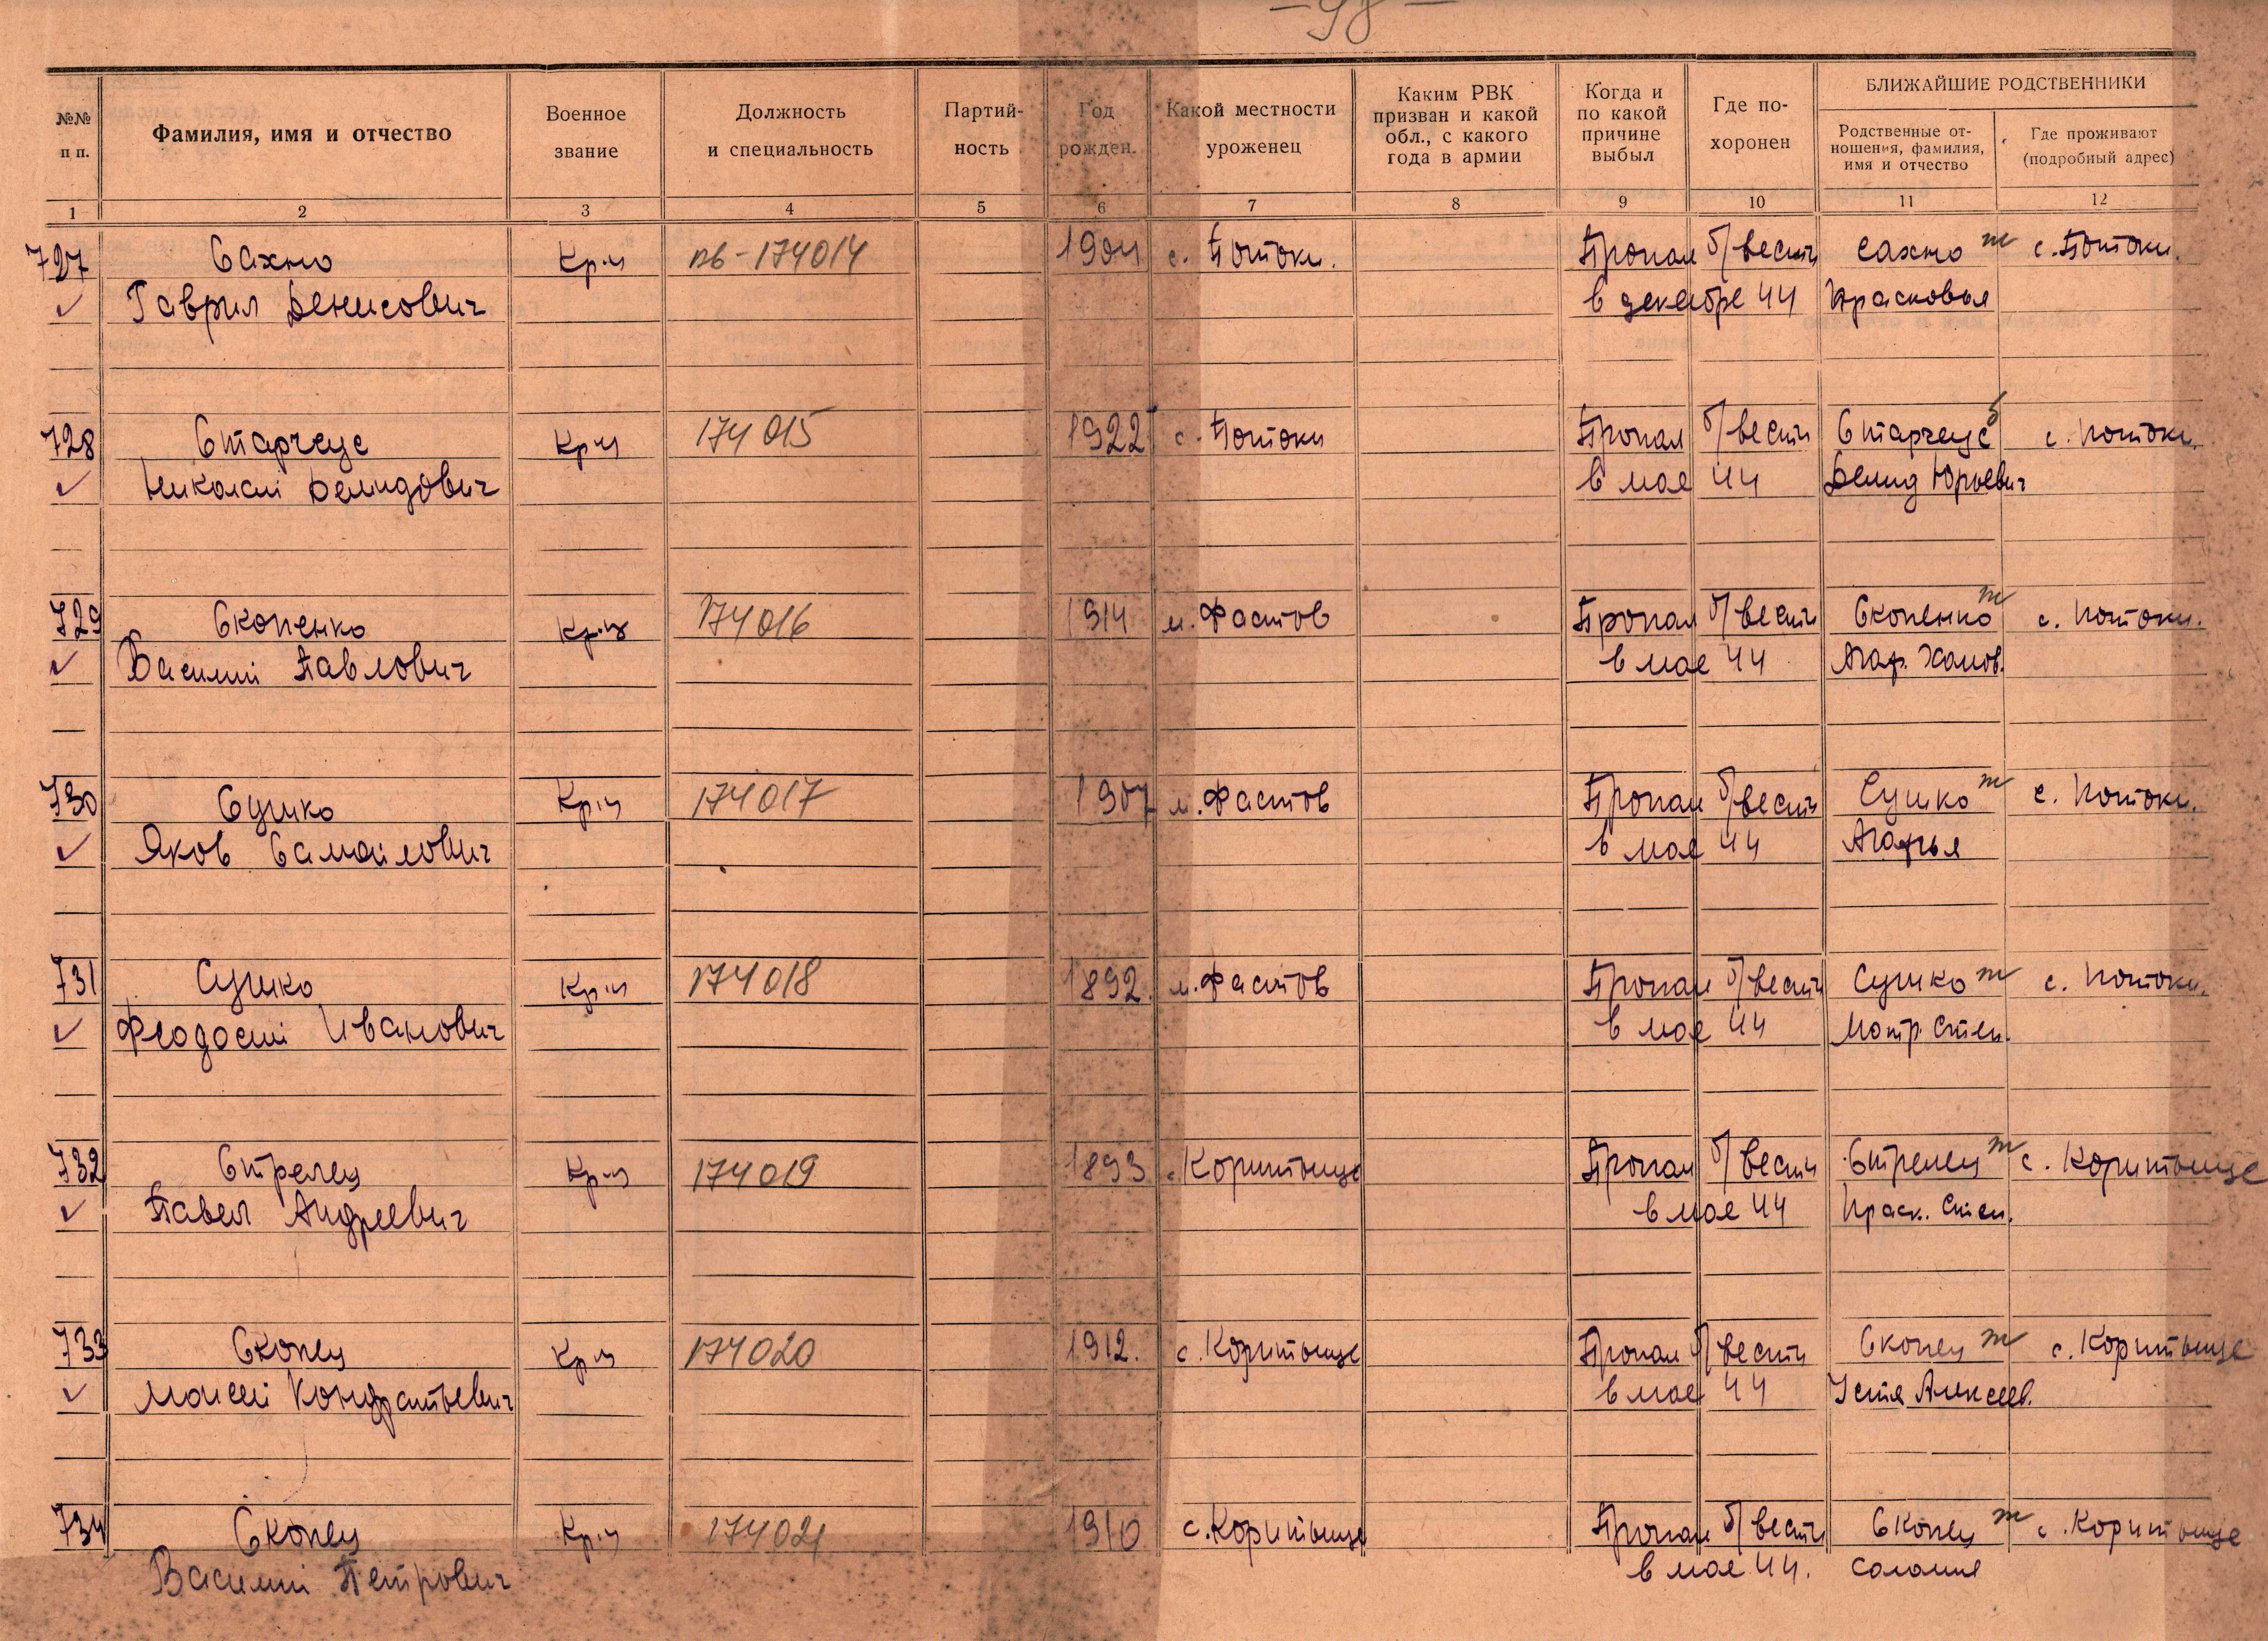 — 98 —
БЛИЖАЙШИЕ РОДСТВЕННИКИ
№№ п п.
Фамилия, имя и отчество
Военное звание
Должность и специальность
Партий- ность
Год рожден.
Какой местности уроженец
Каким РВК призван и какой обл., с какого года в армии
Когда и по какой причине выбыл
Где по- хоронен
Родственные от- ношения, фамилия, имя и отчество
Где проживают (подробный адрес)
1 2 3 4 5 6 7 8 9 10 11 12
727 Сахно Кр-ц пв-174014 1904 с. Потоки. Пропал б/вести Сахно ж с. Потоки.
Гаврил Денисович в декабре 44 Прасковья
728 Старчеус Кр-ц 174015 1922 с. Потоки Пропал б/вести Старчеус с. Потоки.
Николай Демидович в мае 44 Демид Юрьевич
729 Скопенко Кр-ц 174016 1914 м. Фастов Пропал б/вести Скопенко ж с. Потоки.
Василий Павлович в мае 44 Агаф.
730 Сушко Кр-ц 174017 1907 м. Фастов Пропал б/вести Сушко ж с. Потоки.
Яков Самойлович в мае 44 Агафья
731 Сушко Кр-ц 174018 1892. м. Фастов Пропал б/вести Сушко ж с. Потоки.
Феодосий Иванович в мае 44 Мотр. Степ.
732 Стрелец Кр-ц 174019 1893 с. Коритыще Пропал б/вести Стрелец ж с. Коритыще
Павел Андреевич в мае 44 Праск. Степ.
733 Скопец Кр-ц 174020 1912. с. Коритыще Пропал б/вести Скопец ж с. Коритыще
Моисей Кондратьевич в мае 44 Устя Алексеев.
734 Скопец Кр-ц 174021 1910 с. Коритыще Пропал б/вести Скопец ж с. Коритыще
Василий Петрович в мае 44. Соломия